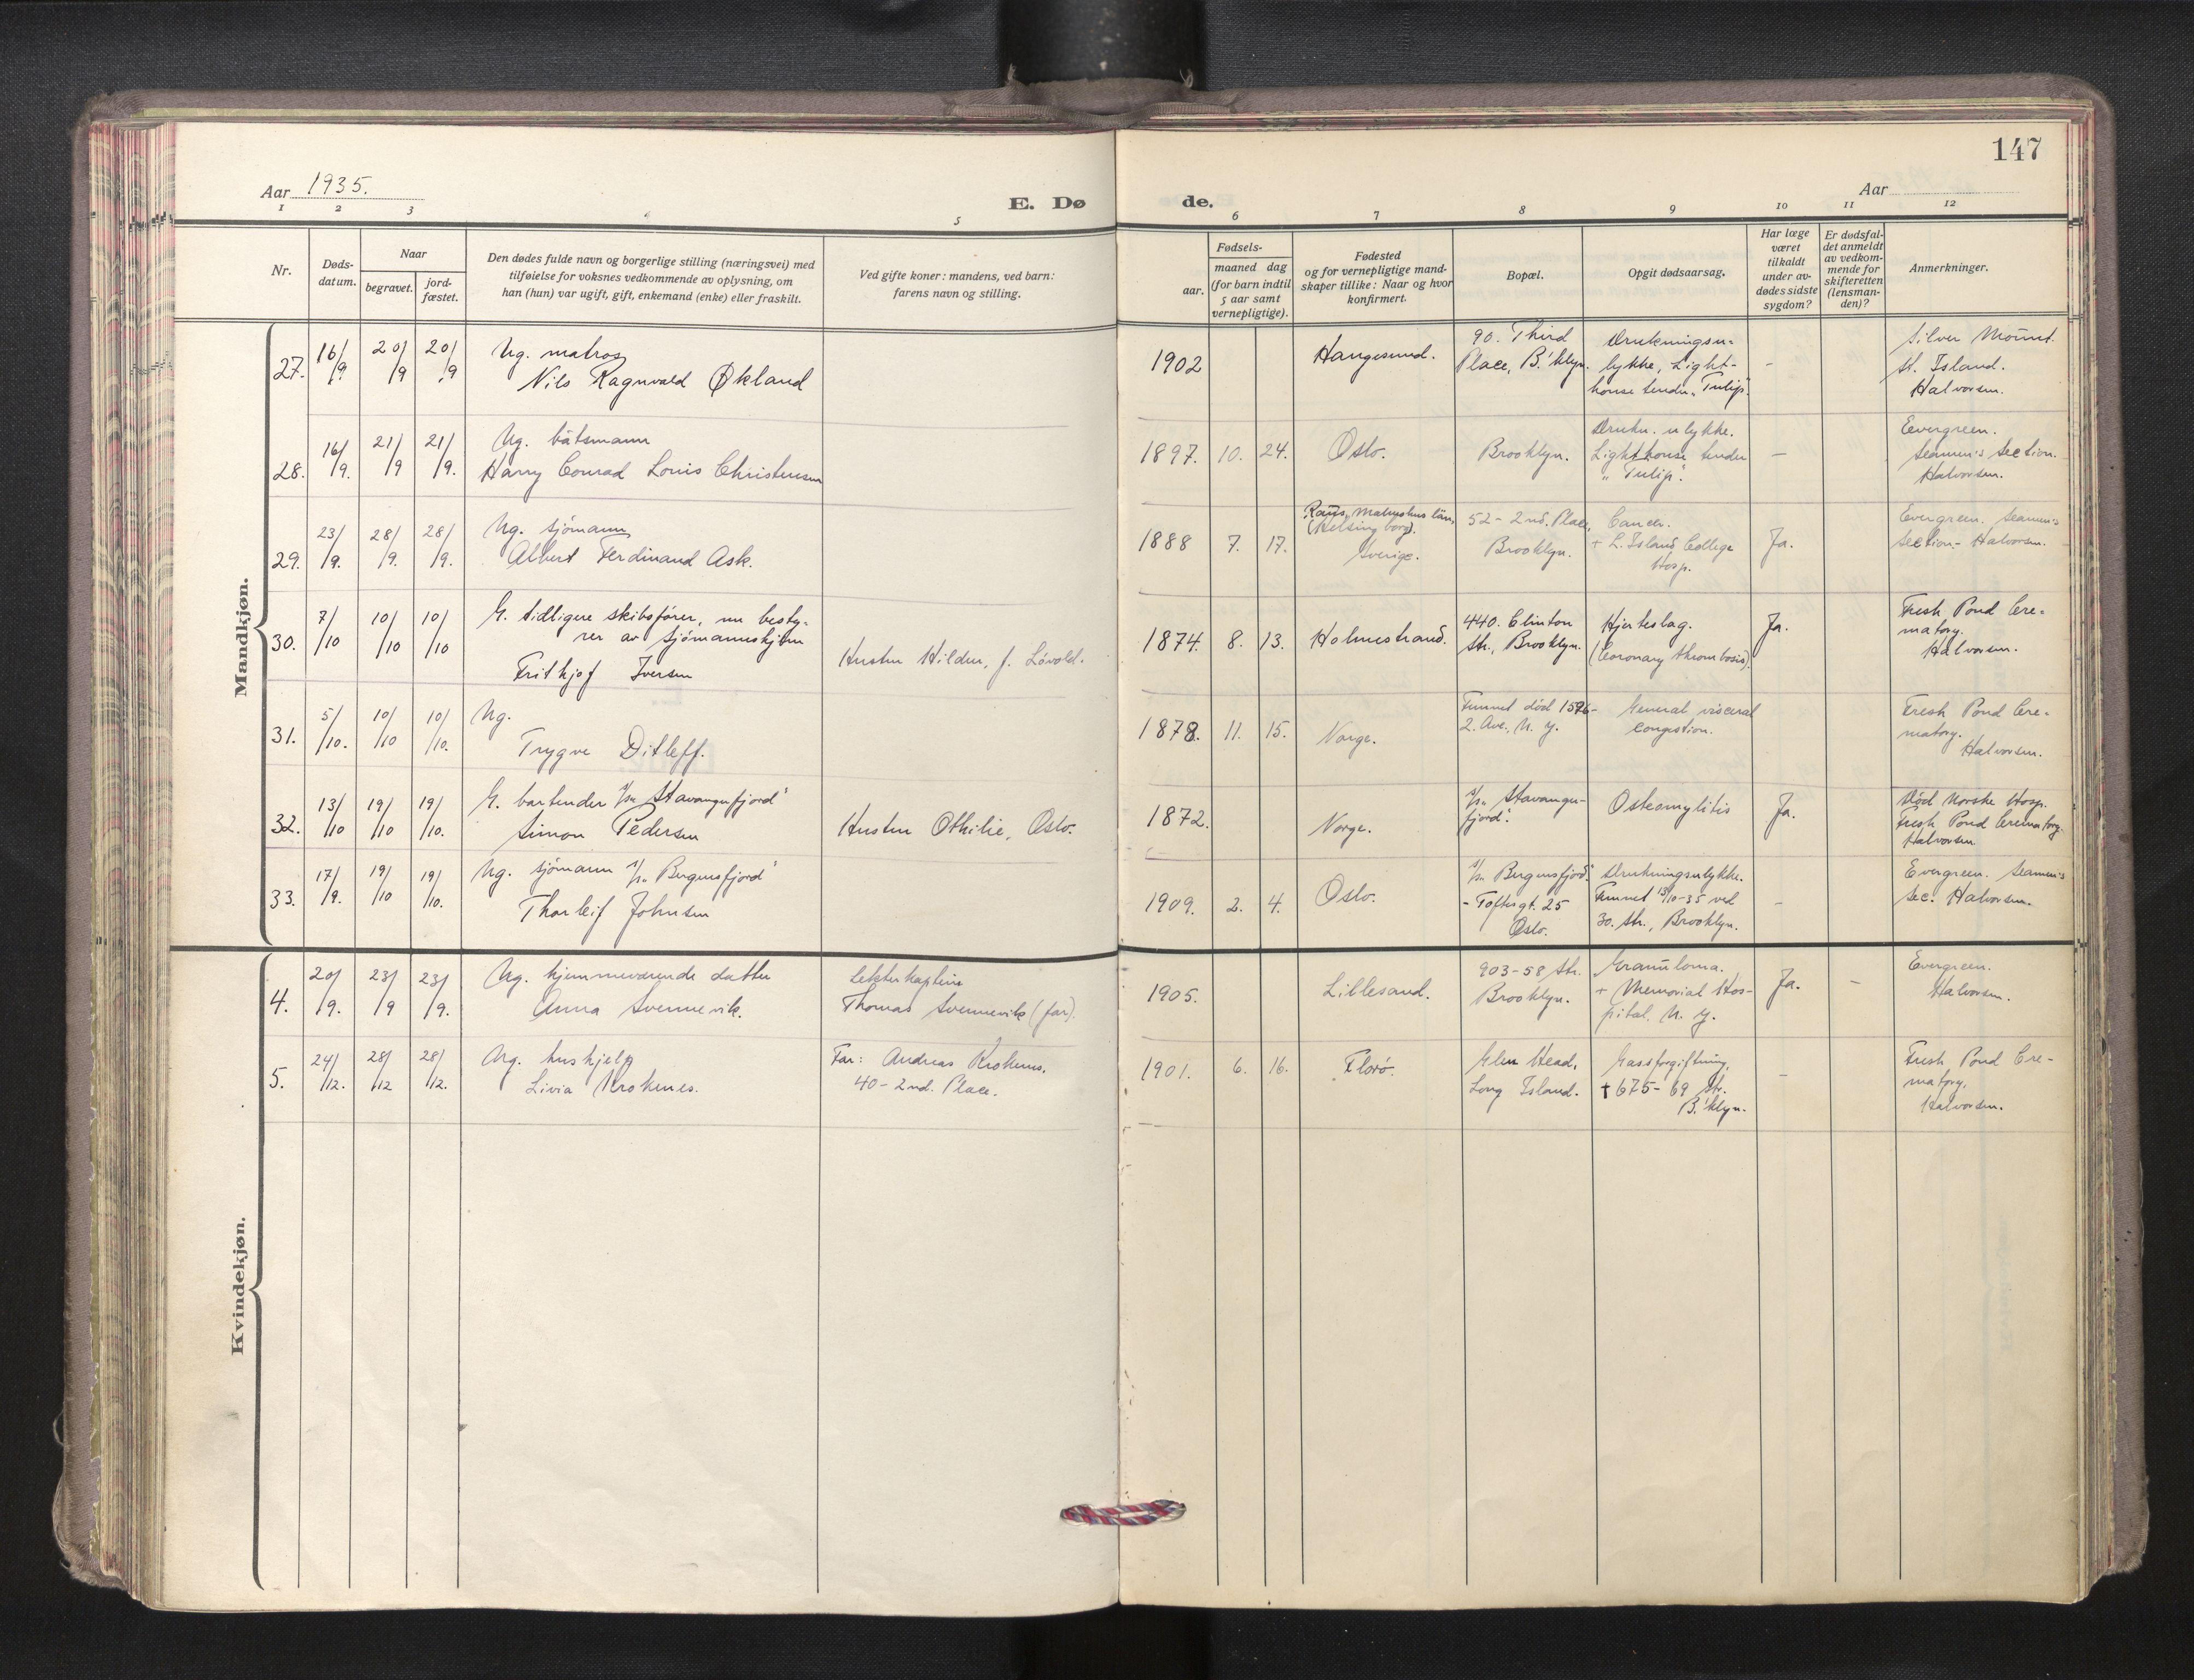 147
Aar 1935.
Aar
E. Dø
de.
1 2 3 4 5 6 7 8 9 10 11 12
Nr.
Døds-
datum.
Naar
begravet.
jord-
fæstet.
Den dødes fulde navn og borgerlige stilling (næringsvei) med
tilføielse for voksnes vedkommende av oplysning, om
han (hun) var ugift, gift, enkemand (enke) eller fraskilt.
Ved gifte koner: mandens, ved barn:
farens navn og stilling.
Fødsels-
aar.
maaned dag
(for barn indtil
5 aar samt
vernepligtige).
Fødested
og for vernepligtige mand-
skaper tillike: Naar og hvor
konfirmert.
Bopæl.
Opgit dødsaarsag.
Har læge
været
tilkaldt
under av-
dødes sidste
sygdom?
Er dødsfal-
det anmeldt
av vedkom-
mende for
skifteretten
(lensman-
den)?
Anmerkninger.
Mandkjøn.
27. 16/9. 20/9 20/9
Ug. matros
Nils Ragnvald Økland
1902
Haugesund.
90. Third
Place, B.'klyn.
Drukningsu-
lykke, Light-
house tender „Tulip".
-
Silver Mount.
St. Island.
Halvorsen.
28. 16/9. 21/9 21/9.
Ug. båtsmann
Harry Conrad Louis Christensen
1897. 10. 24.
Oslo.
Brooklyn.
Drukn. ulykke.
Lighthouse tender
„Tulip".
-
Evergreen.
Seamen's Section.
Halvorsen.
29. 23/9. 28/9. 28/9.
Ug. sjömann
Albert Ferdinand Ask.
1888 7. 17.
Raus, Malmöhus län,
(Helsingborg).
Sverige.
52 - 2nd. Place,
Brooklyn.
Cancer.
+ L. Island College
Hosp.
Ja.
Evergreen. Seamen's
Section - Halvorsen.
30. 7/10 10/10 10/10
G. tidligere skibsfører, nu besty-
rer av sjömannshjem
Frithjof Iversen
Hustru Hilda, f. Lövold.
1874. 8. 13.
Holmestrand.
440. Clinton
Str., Brooklyn.
Hjerteslag.
(Coronary thrombosis).
Ja.
Fresh Pond Cre-
matory.
Halvorsen.
31. 5/10. 10/10 10/10.
Ug.
Trygve Ditleff.
1878. 11. 15.
Norge.
Funnet död 1576-
2. Ave., N. Y.
General visceral
congestion.
Fresh Pond Cre-
matory.
Halvorsen.
32. 13/10 19/10 19/10.
G. bartender s/s „Stavangerfjord"
Simon Pedersen
Hustru Othilie, Oslo.
1872.
Norge.
s/s „Stavanger-
fjord".
Osteomylitis
Ja.
Död Norske Hosp.
Fresh Pond Crematory
Halvorsen
33. 17/9. 19/10 19/10.
Ug. sjömann s/s „Bergensfjord"
Thorleif Johnsen
1909. 2. 4.
Oslo.
s/s „Bergensfjord".
- Toftesgt. 25
Oslo.
Drukningsulykke.
Funnet 13/10-35 ved
30. Str., Brooklyn.
-
Evergreen. Seamen's
Sec. Halvorsen.
Kvindekjøn.
4. 20/9. 23/9 23/9.
Ug. hjemmeværende datter
Anna Svennevik.
Thomas Svennevik (far).
1905.
Lillesand.
903-58 Str.
Brooklyn.
Granuloma.
+ Memorial Hos-
pital. N. Y.
Ja.
-
Evergreen.
Halvorsen.
5. 24/12. 28/12 28/12.
Ug. hushjelp
Livia Kroknes.
Far: Andreas Kroknes.
40 - 2nd. Place.
1901. 6. 16.
Florö.
Glen Head,
Long Island.
Gassforgiftning,
† 675 - 69 Str.
B.'klyn.
-
Fresh Pond Cre-
matory.
Halvorsen.